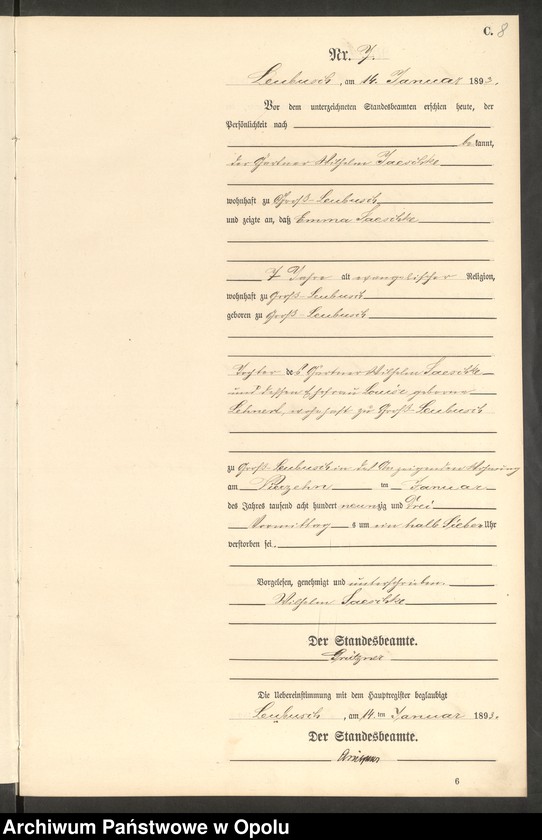 C. 8
Nr. 7.
Leubusch, am 14. Januar 1893.
Vor dem unterzeichneten Standesbeamten erschien heute, der
Persönlichkeit nach
bekannt,
der Gärtner Wilhelm
wohnhaft zu Groß-Leubusch
und zeigte an, daß Emma
7 Jahre alt evangelischer Religion,
wohnhaft zu Groß-Leubusch
geboren zu Groß-Leubusch
Tochter des Gärtner Wilhelm
und dessen Ehefrau Louise geborne
Lehnert, wohnhaft zu Groß-Leubusch
zu Groß-Leubusch in des Anzeigenden Wohnung
am Vierzehn ten Januar
des Jahres tausend acht hundert neunzig und Drei
Vormittag s um ein halb Sieben Uhr
verstorben sei.
Vorgelesen, genehmigt und unterschrieben.
Wilhelm
Der Standesbeamte.
Die Uebereinstimmung mit dem Hauptregister beglaubigt
Leubusch, am 14. ten Januar 1893.
Der Standesbeamte.
6
Archiwum Państwowe w Opolu